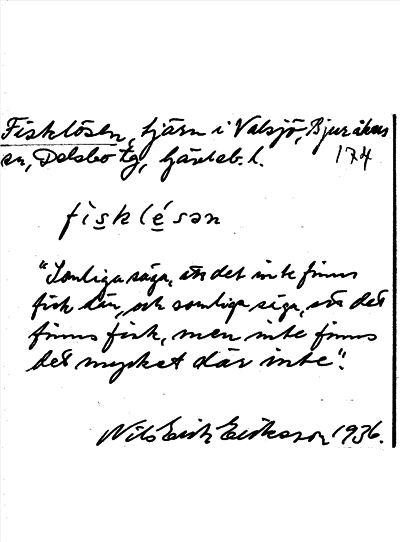 Fisklösen, tjärn i Valsjö, Bjuråkers
sn, Delsbo tg, Gävleb. l. 174
fiskle´sən
"Somliga säga, att det inte finns
fisk där, och somliga säga, att det
finns fisk, men inte finns
det mycket där inte".
Nils Erik Eriksson 1936.